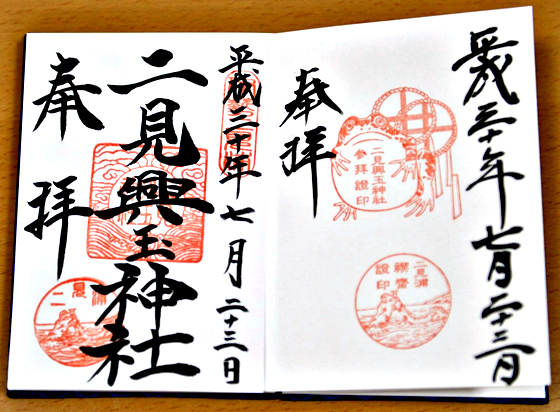 平成三十年七月二十三日
奉拝
二見興玉神社
参拝證印
二見浦
禊斎
證印
平成三十年七月二十三日
二見興玉神社
奉拝